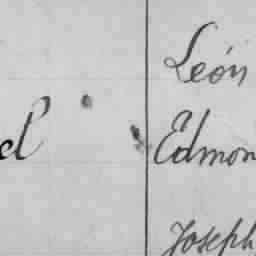 León
el Edmon
Joseph